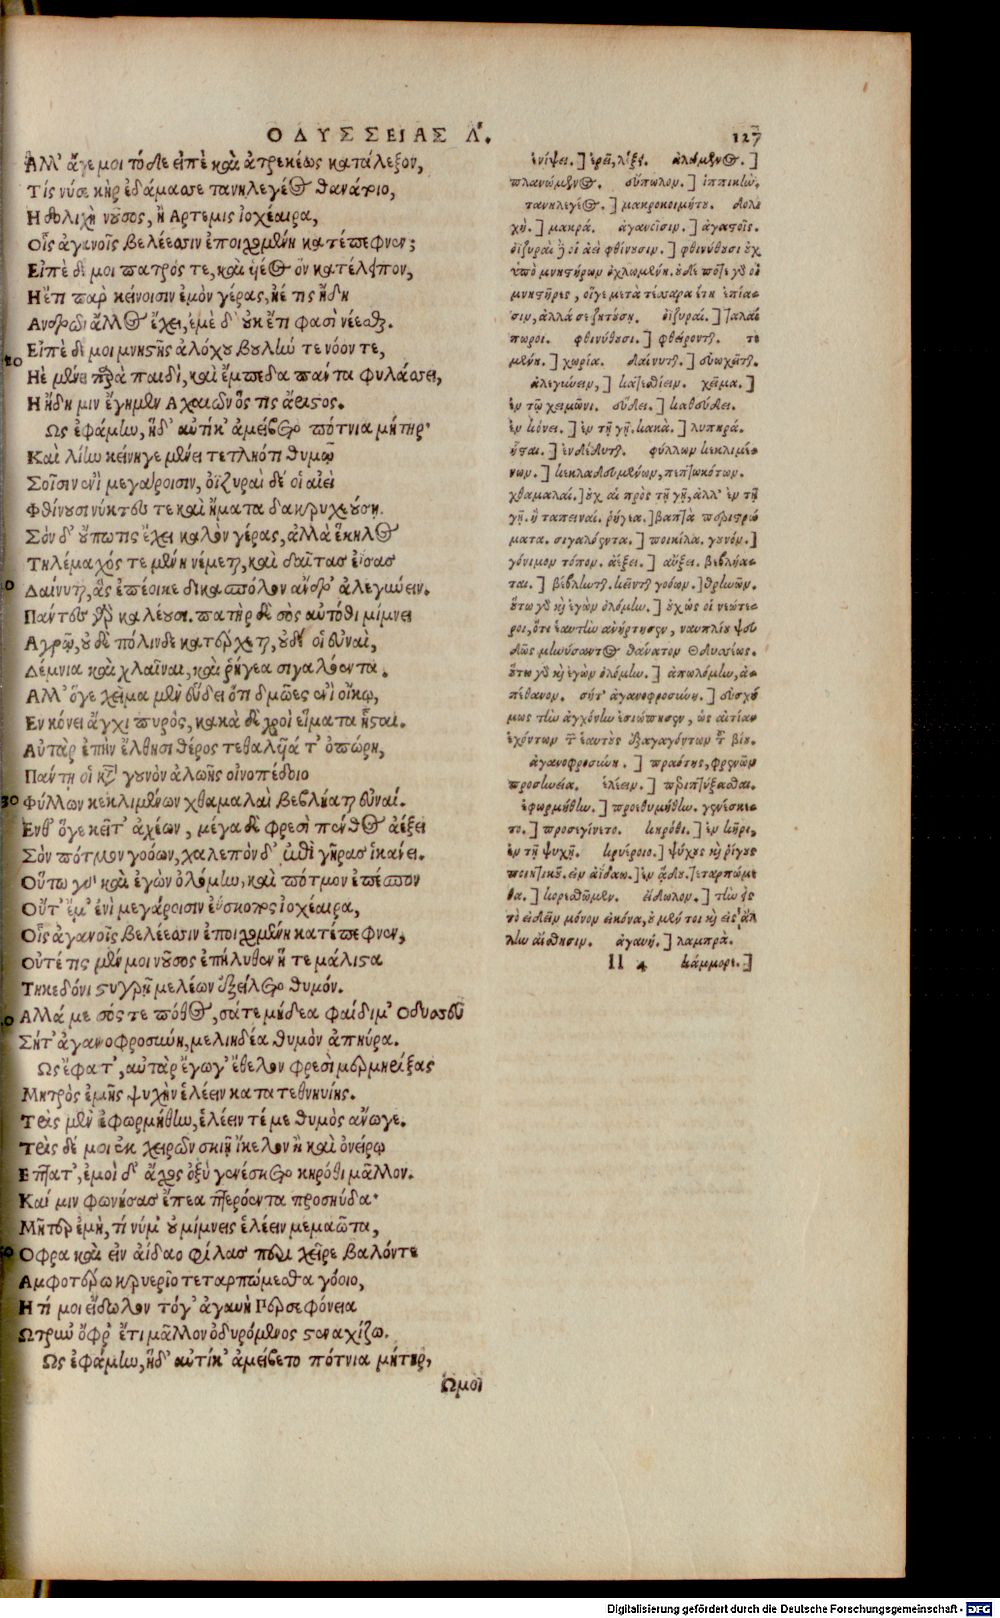 ΟΔΥΣΣΕΙΑΣ Λ.
127
Αλλ' ἄγε μοι τόδε εἰπὲ καὶ ἀτρεκέως κατάλεξον,
Τίς νύ σε κὴρ ἐδάμασσε τανηλεγέος θανάτοιο,
Η δολιχὴ νοῦσος, ἢ Αρτεμις ἰοχέαιρα,
Οἷς ἀγανοῖς βελέεσσιν ἐποιχομένη κατέπεφνεν;
Εἰπὲ δέ μοι πατρός τε, καὶ ὑέος ὃν κατέλειπον,
Η ἔτι παρ κείνοισιν ἐμὸν γέρας, ἠέ τις ἤδη
Ανδρῶν ἄλλος ἔχει, ἐμὲ δ' οὐκ ἔτι φασὶ νέεσθαι.
Εἰπὲ δέ μοι μνηστῆς ἀλόχου βουλήν τε νόον τε,
20
Ηὲ μένει παρὰ παιδὶ, καὶ ἔμπεδα πάντα φυλάσσει,
Η ἤδη μιν ἔγημεν Αχαιῶν ὅς τις ἄριστος.
Ως ἐφάμην, ἡ δ' αὐτίκ' ἀμείβετο πότνια μήτηρ·
Καὶ λίην κείνη γε μένει τετληότι θυμῷ
Σοῖσιν ἐνὶ μεγάροισιν, ὀϊζυραὶ δέ οἱ αἰεὶ
Φθίνουσι νύκτες τε καὶ ἤματα δακρυχεούσῃ.
Σὸν δ' οὔπω τις ἔχει καλὸν γέρας, ἀλλὰ ἕκηλος
Τηλέμαχός τεμένη νέμεται, καὶ δαῖτας ἐΐσας
0
Δαίνυται, ἃς ἐπέοικε δικασπόλον ἄνδρ' ἀλεγύνειν.
Πάντες γὰρ καλέουσι. πατὴρ δὲ σὸς αὐτόθι μίμνει
Αγρῷ, οὐδὲ πόλινδε κατέρχεται, οὐδέ οἱ εὐναὶ,
Δέμνια καὶ χλαῖναι, καὶ ῥήγεα σιγαλόεντα.
Αλλ' ὅγε χεῖμα μὲν εὕδει ὅτι δμῶες ἐνὶ οἴκῳ,
Εν κόνει ἄγχι πυρὸς, κακὰ δὲ χροῒ εἵματα ἧσται.
Αὐτὰρ ἐπὴν ἔλθησι θέρος τεθαλῦιά τ' ὀπώρη,
Πάντη οἱ κατὰ γουνὸν ἀλωῆς οἰνοπέδοιο
30
Φύλλων κεκλιμένων χθαμαλαὶ βεβλήαται εὐναί.
Ενθ' ὅγε κεῖτ' ἀχέων, μέγα δὲ φρεσὶ πένθος ἀέξει
Σὸν πότμον γοόων, χαλεπὸν δ' ἐπὶ γῆρας ἱκάνει.
Οὕτω γὰρ καὶ ἐγὼν ὀλόμην, καὶ πότμον ἐπέσπον
Οὔτ' ἔμ' ἐνὶ μεγάροισιν ἐΰσκοπος ἰοχέαιρα,
Οἷς ἀγανοῖς βελέεσσιν ἐποιχομένη κατέπεφνεν,
Οὔτέ τις μὲν μοι νοῦσος ἐπήλυθεν ἥ τε μάλιστα
Τηκεδόνι στυγρῇ μελέων ἐξείλετο θυμόν.
0
Αλλά με σός τε πόθος, σά τε μήδεα φαίδιμ' Οδυσσεῦ
Σήτ' ἀγανοφροσύνη, μελιηδέα θυμὸν ἀπηύρα.
Ως ἔφατ', αὐτὰρ ἔγωγ' ἔθελον φρεσὶ μερμηρίξας
Μητρὸς ἐμῆς ψυχὴν ἑλέειν κατατεθνηυίης.
Τρὶς μὲν ἐφωρμήθην, ἑλέειν τέ με θυμὸς ἄνωγε.
Τρὶς δέ μοι ἐκ χειρῶν σκιῇ ἴκελον ἢ καὶ ὀνείρῳ
Επτατ', ἐμοὶ δ' ἄχος ὀξὺ γενέσκετο κηρόθι μᾶλλον.
Καί μιν φωνήσας ἔπεα πτερόεντα προσηύδα·
Μῆτερ ἐμὴ, τί νύ μ' οὐ μίμνεις ἑλέειν μεμαῶτα,
Οφρα καὶ εἰν ἀΐδαο φίλας περὶ χεῖρε βαλόντε
Αμφοτέρω κρυεροῖο τεταρπώμεσθα γόοιο,
Η τί μοι εἴδωλον τόγ' ἀγαυὴ Περσεφόνεια
Ωτρυν' ὄφρ' ἔτι μᾶλλον ὀδυρόμενος στεναχίζω.
Ως ἐφάμην, ἡ δ' αὐτίκ' ἀμείβετο πότνια μήτηρ,
Ωμοι
ἐνίψει.] ἐρεῖ, λέξει. ἀλώμενος.]
πλανώμενος. εὔπωλον.] ἱππικήν.
τανηλεγέος.] μακροκοιμήτου. δολι
χή.] μακρά. ἀγανοῖσιν.] ἀγαθοῖς.
ὀϊζυραὶ δέ οἱ ἀεὶ φθίνουσιν.] φθινύθουσι οὐχ
ὑπὸ μνηστήρων ὀχλωμένη. οὐδέπω γὰρ οἱ
μνηστῆρες, οἵγε μετὰ τέσσαρα ἔτη ἐπίασιν,
πωροι. φθινύθουσι.] φθείρονται. τε
μένη.] χωρία. δαίνυται.] εὐωχεῖται.
ἀλεγύνειν,] κατεσθίειν. χεῖμα.]
ἐν τῷ χειμῶνι. εὕδει.] καθεύδει.
ἐν κόνει.] ἐν τῇ γῇ. κακά.] λυπηρά.
ἧσται.] ἐνδέδυται. φύλλων κεκλιμέ-
νων.] κεκλασμένων, πεπτωκότων.
χθαμαλαί.] οὐχ αἱ πρὸς τῇ γῇ, ἀλλ' ἐν τῇ
γῇ. ἢ ταπειναί. ῥήγεα.] βαπτὰ περιστρώ
ματα. σιγαλόεντα.] ποικίλα. γουνόν.]
γόνιμον τόπον. ἀέξει.] αὔξει. βεβλήα-
ται.] βέβληται. κεῖνται γοόων.] θρηνῶν.
οὕτω γὰρ καὶ ἐγὼν ὀλόμην.] οὐχ ὡς οἱ νεώτε-
ροι, ὅτι ἑαυτὴν ἀνήρτησεν, ναυπλίου ψευ
δῶς μηνύσαντος θάνατον Οδυσσέως.
οὕτω γὰρ καὶ ἐγὼν ὀλόμην.] ἀπωλόμην, ἀ-
πέθανον. σήτ' ἀγανοφροσύνη.] εὐσχή
μως τὴν ἀγχόνην ἐσιώπησεν, ὡς αἰτίαν
ἐχόντων τῶν ἑαυτοὺς ἐξαγαγόντων τοῦ βίου.
ἀγανοφροσύνη.] πραότης, φρενῶν
προσήνεια. ἑλέειν.] περιπτύξασθαι.
ἐφωρμήθην.] προεθυμήθην. γενέσκε-
το.] προσεγίνετο. κηρόθι.] ἐν κῆρι,
ἐν τῇ ψυχῇ. κρυεροῖο.] ψύχους καὶ ῥίγους
ποιητικοῦ. εἰν ἀΐδαο.] ἐν ᾅδου. τεταρπώμε
θα.] κορεσθῶμεν. εἴδωλον.]
ἀγαυή.] λαμπρά.
ll 4 κάμμορε.]
Digitalisierung gefördert durch die Deutsche Forschungsgemeinschaft - DFG